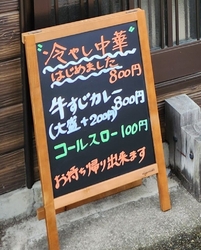 "冷やし中華"
はじめました
800円
牛すじカレー
800円
(大盛+200円)
コールスロー100円
お持ち帰り出来ます